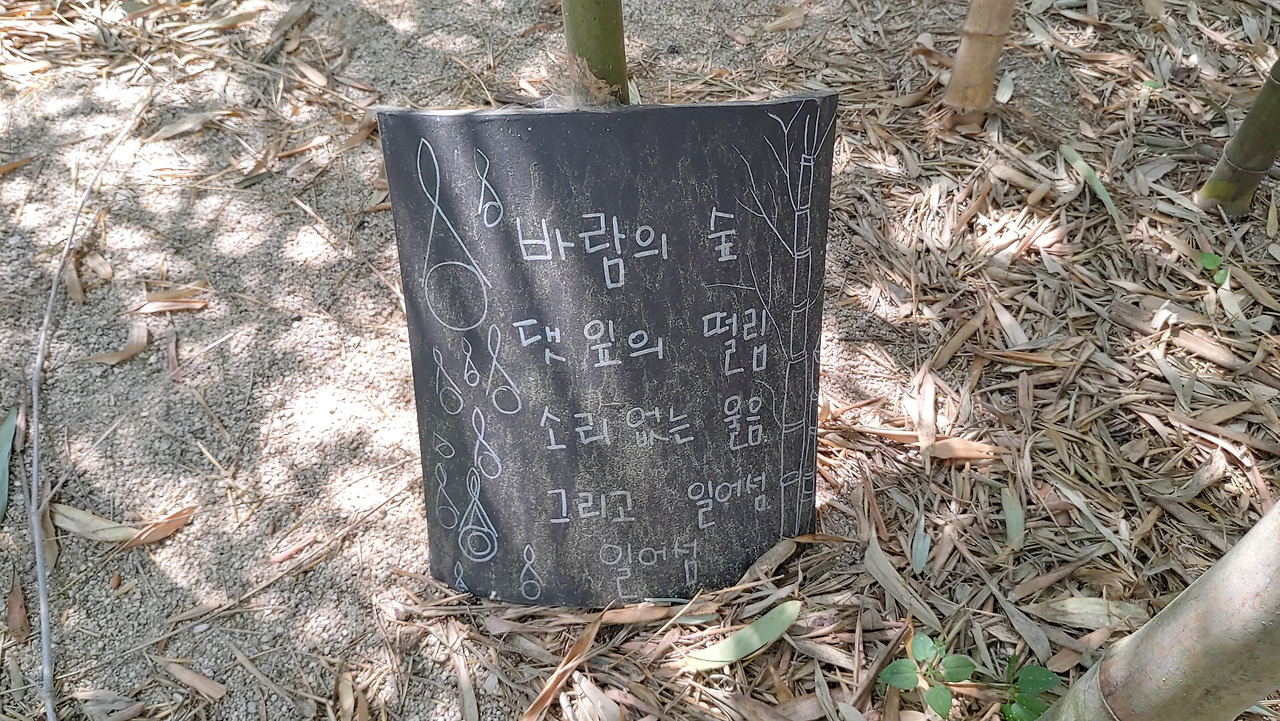 바람의 숲
댓잎의 떨림
소리 없는 울음
그리고 일어섬
일어섬